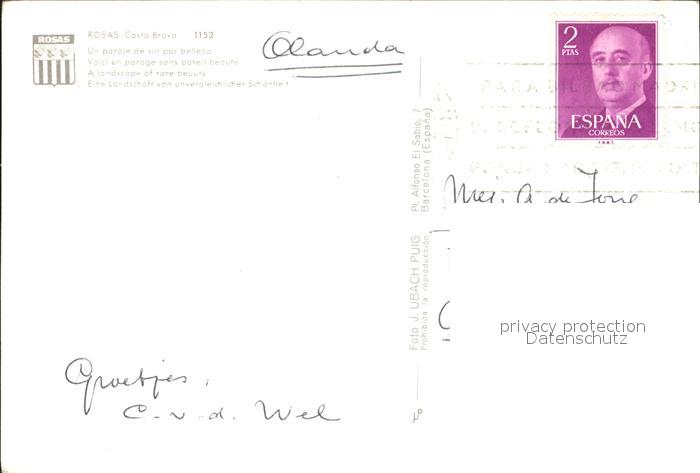 ROSAS
ROSAS. Costa Brava 1152
Un paraje de sin par belleza
Voici un parage sans pareil beaute
A landscape of rare beauty
Eine Landschaft von unvergleichlicher Schönheit
Olanda
2
PTAS
ESPAÑA
CORREOS
PARA BIL MADRI
Pl. Alfonso El Sabio, 7
Barcelona (España)
Foto J. UBACH PUIG
Prohibida la reproducción
A. de
privacy protection
Datenschutz
Groetjes,
C. v. d. Wel